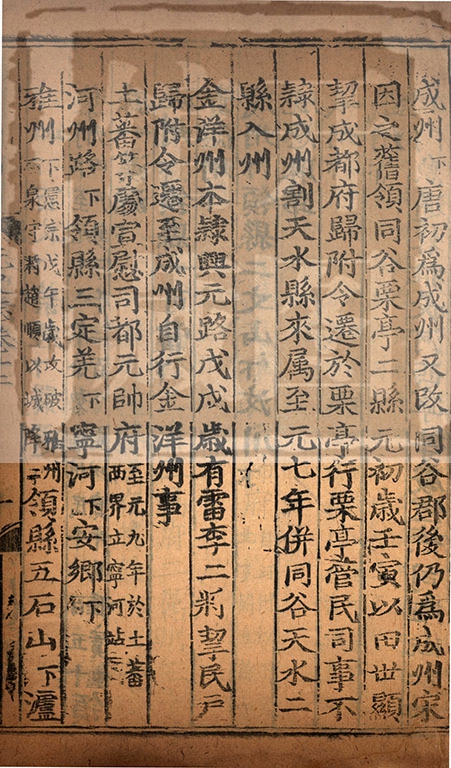 成州下唐初爲成州又改同谷郡後仍爲成州宋
因之舊領同谷栗亭二縣元初歲壬寅以田世顯
挈成都府歸附令遷於栗亭行栗亭管民司事不
隸成州割天水縣來属至元七年併同谷天水二
縣入州
金洋州本隸興元路戊戌歲有雷李二将挈民戶
歸附令遷至成州自行金洋州事
土蕃等處宣慰司都元帥府至元九年於土蕃西界立寧河站
河州路下領縣三定羌下寧河下安鄉下
雅州下憲宗戊午歲攻破雅州石泉守將趙順以城降領縣五石山下瀘